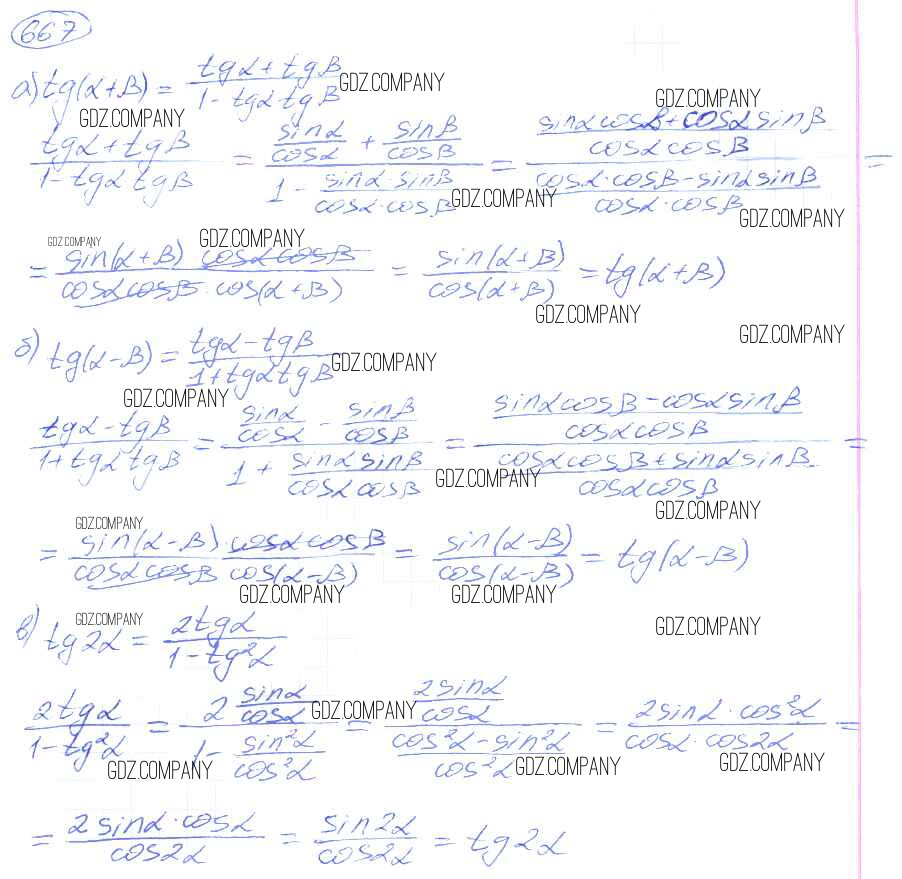 667
а) tg(α+β) = (tgα+tgβ)/(1-tgα tgβ) GDZ.COMPANY
GDZ.COMPANY GDZ.COMPANY
(tgα+tgβ)/(1-tgα tgβ) = (sinα/cosα + sinβ/cosβ)/(1 - (sinα·sinβ)/(cosα·cosβ)) = ((sinα cosβ+cosα sinβ)/(cosα cosβ))/((cosα·cosβ-sinα sinβ)/(cosα·cosβ)) =
GDZ.COMPANY GDZ.COMPANY
GDZ.COMPANY GDZ.COMPANY
= (sin(α+β) cosα cosβ)/(cosα cosβ · cos(α+β)) = sin(α+β)/cos(α+β) = tg(α+β)
GDZ.COMPANY GDZ.COMPANY
б) tg(α-β) = (tgα-tgβ)/(1+tgα tgβ) GDZ.COMPANY
GDZ.COMPANY
(tgα-tgβ)/(1+tgα tgβ) = (sinα/cosα - sinβ/cosβ)/(1 + (sinα sinβ)/(cosα cosβ)) = ((sinα cosβ-cosα sinβ)/(cosα cosβ))/((cosα cosβ+sinα sinβ)/(cosα cosβ)) =
GDZ.COMPANY GDZ.COMPANY
GDZ.COMPANY
= (sin(α-β)·cosα cosβ)/(cosα cosβ cos(α-β)) = sin(α-β)/cos(α-β) = tg(α-β)
GDZ.COMPANY GDZ.COMPANY
GDZ.COMPANY GDZ.COMPANY
в) tg2α = 2tgα/(1-tg²α)
2tgα/(1-tg²α) = (2 sinα/cosα)/(1 - sin²α/cos²α) = (2sinα/cosα)/((cos²α-sin²α)/cos²α) = (2sinα·cos²α)/(cosα·cos2α) =
GDZ.COMPANY GDZ.COMPANY GDZ.COMPANY GDZ.COMPANY
= (2sinα·cosα)/cos2α = sin2α/cos2α = tg2α